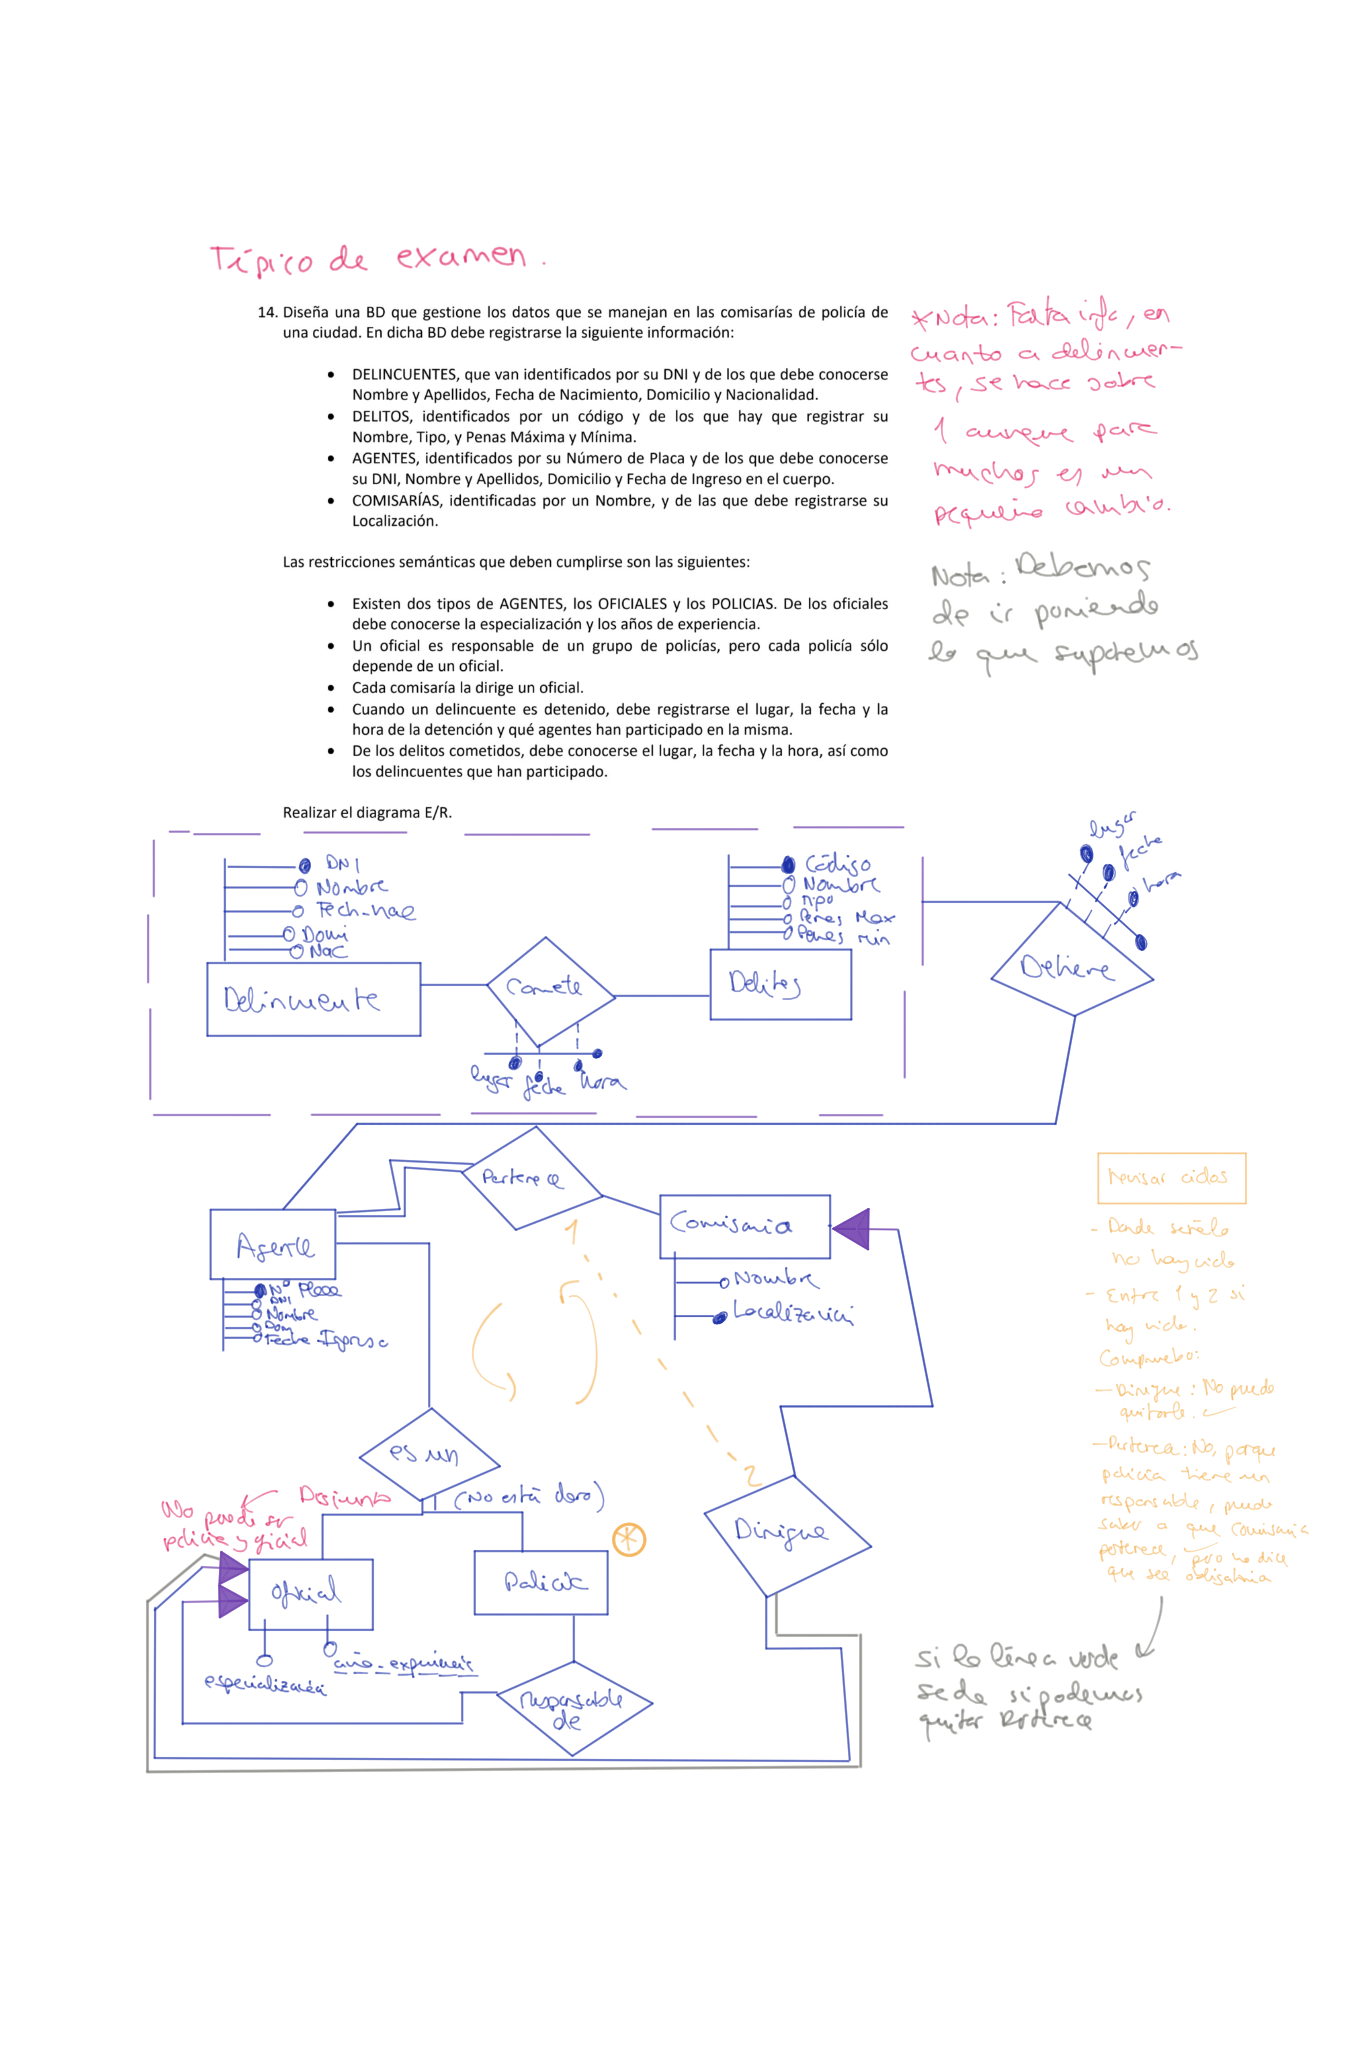 Típico de examen.
14. Diseña una BD que gestione los datos que se manejan en las comisarías de policía de
una ciudad. En dicha BD debe registrarse la siguiente información:
• DELINCUENTES, que van identificados por su DNI y de los que debe conocerse
Nombre y Apellidos, Fecha de Nacimiento, Domicilio y Nacionalidad.
• DELITOS, identificados por un código y de los que hay que registrar su
Nombre, Tipo, y Penas Máxima y Mínima.
• AGENTES, identificados por su Número de Placa y de los que debe conocerse
su DNI, Nombre y Apellidos, Domicilio y Fecha de Ingreso en el cuerpo.
• COMISARÍAS, identificadas por un Nombre, y de las que debe registrarse su
Localización.
Las restricciones semánticas que deben cumplirse son las siguientes:
• Existen dos tipos de AGENTES, los OFICIALES y los POLICIAS. De los oficiales
debe conocerse la especialización y los años de experiencia.
• Un oficial es responsable de un grupo de policías, pero cada policía sólo
depende de un oficial.
• Cada comisaría la dirige un oficial.
• Cuando un delincuente es detenido, debe registrarse el lugar, la fecha y la
hora de la detención y qué agentes han participado en la misma.
• De los delitos cometidos, debe conocerse el lugar, la fecha y la hora, así como
los delincuentes que han participado.
Realizar el diagrama E/R.
*Nota: Falta info, en
cuanto a delincuen-
tes, se hace sobre
1 aunque para
muchos es un
pequeño cambio.
Nota: Debemos
de ir poniendo
lo que suponemos
DNI
Nombre
Fech-nac
Domi
Nac
Delincuente
Comete
lugar fecha hora
Código
Nombre
Tipo
Penas Max
Penas min
Delitos
lugar
fecha
hora
Detiene
Pertenece
Agente
Nº Placa
DNI
Nombre
Dom
Fecha-Ingreso
Comisaria
Nombre
Localización
1
2
es un
Disjunto
(No está claro)
No puede ser
policia y oficial
Oficial
Policia
especialización
año_experiencia
responsable
de
Dirigue
Revisar ciclos
- Donde señalo
no hay ciclo
- Entre 1 y 2 si
hay ciclo.
Compruebo:
- Dirigue: No puedo
quitarle.
- Pertenece: No, porque
policía tiene un
responsable, puede
saber a que comisaria
pertenece, pero no dice
que sea obligatoria
si la línea verde
se da si podemos
quitar Pertenece